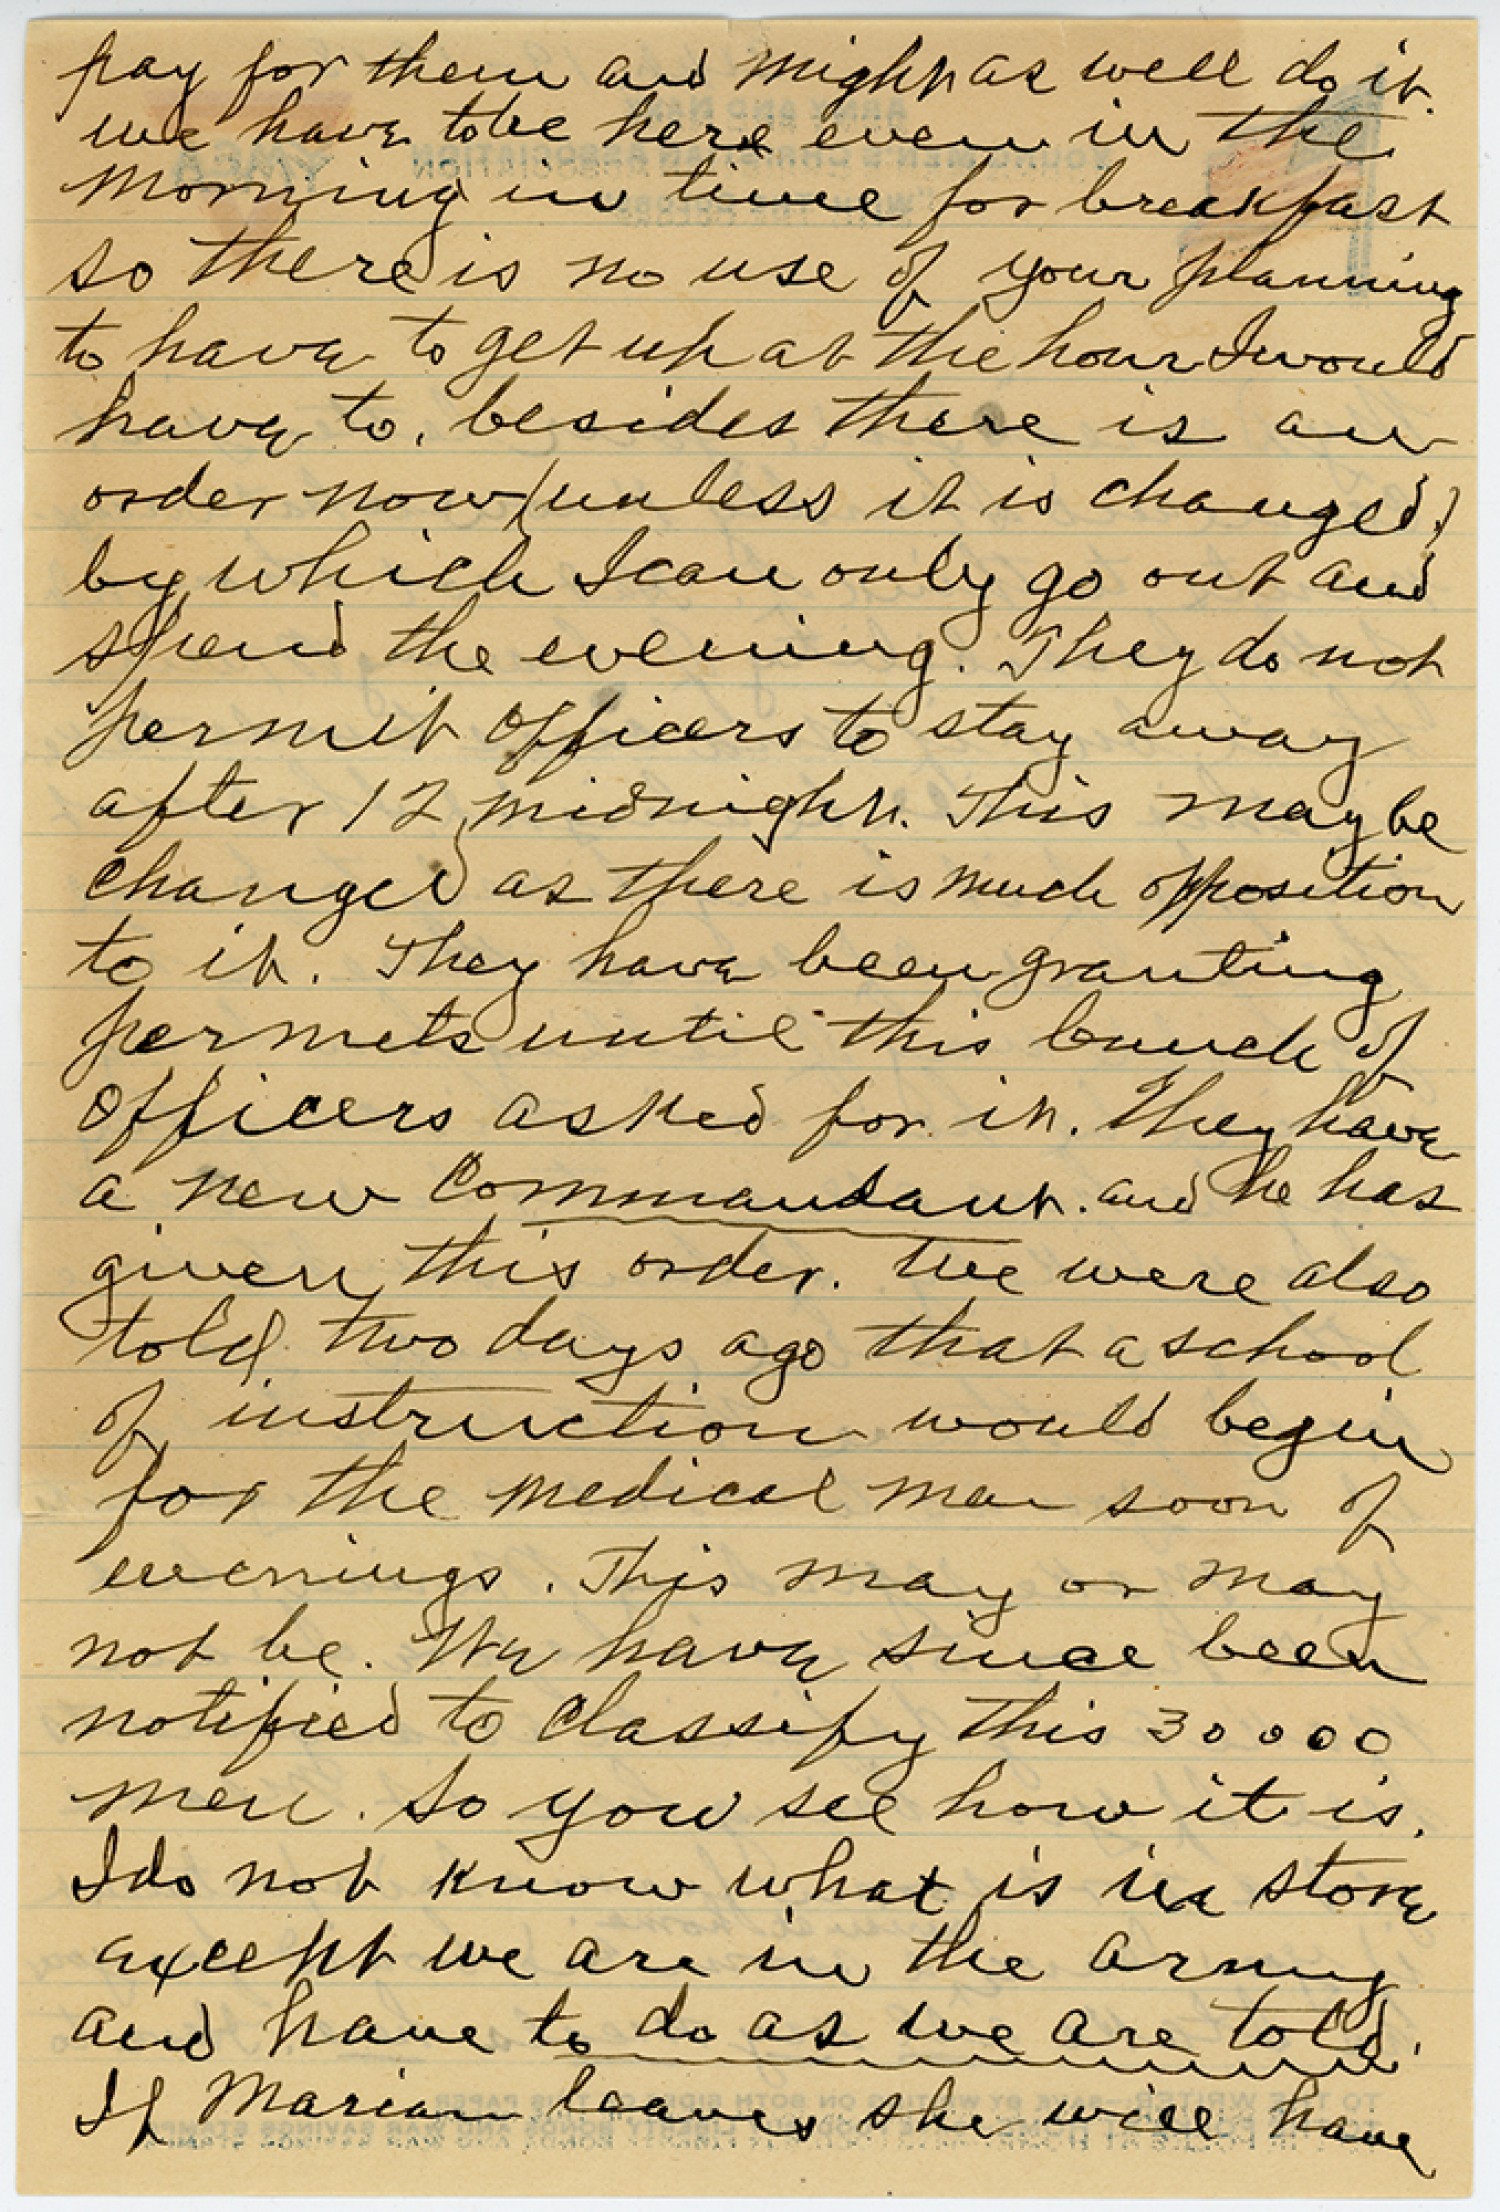 pay for them and might as well do it.
we have to be here even in the
morning in time for breakfast
so there is no use of your planning
to have to get up at the hour I would
have to, besides there is an
order now (unless it is changed)
by which I can only go out and
spend the evening. They do not
permit officers to stay away
after 12 midnight. This may be
changed as there is much opposition
to it. They have been granting
permets until this bunch of
officers asked for it. They have
a new Commandant. and he has
given this order. We were also
told two days ago that a school
of instruction would begin
for the medical men soon of
evenings. This may or may
not be. We have since been
notified to classify this 30000
men. So you see how it is.
I do not know what is in store
except we are in the army
and have to do as we are told.
If Marian leaves she will have